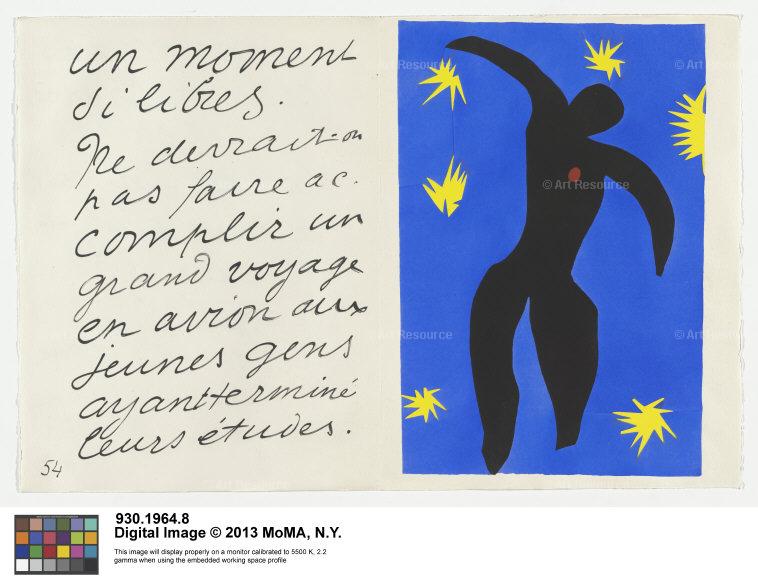 un moment
si libres.
Ne devrait-on
pas faire ac-
complir un
grand voyage
en avion aux
jeunes gens
ayant terminé
leurs études.
54
© Art Resource
© Art Resource
© Art Resource
© Art Resource
© Art Resource
© Art Resource
930.1964.8
Digital Image © 2013 MoMA, N.Y.
This image will display properly on a monitor calibrated to 5500 K, 2.2
gamma when using the embedded working space profile